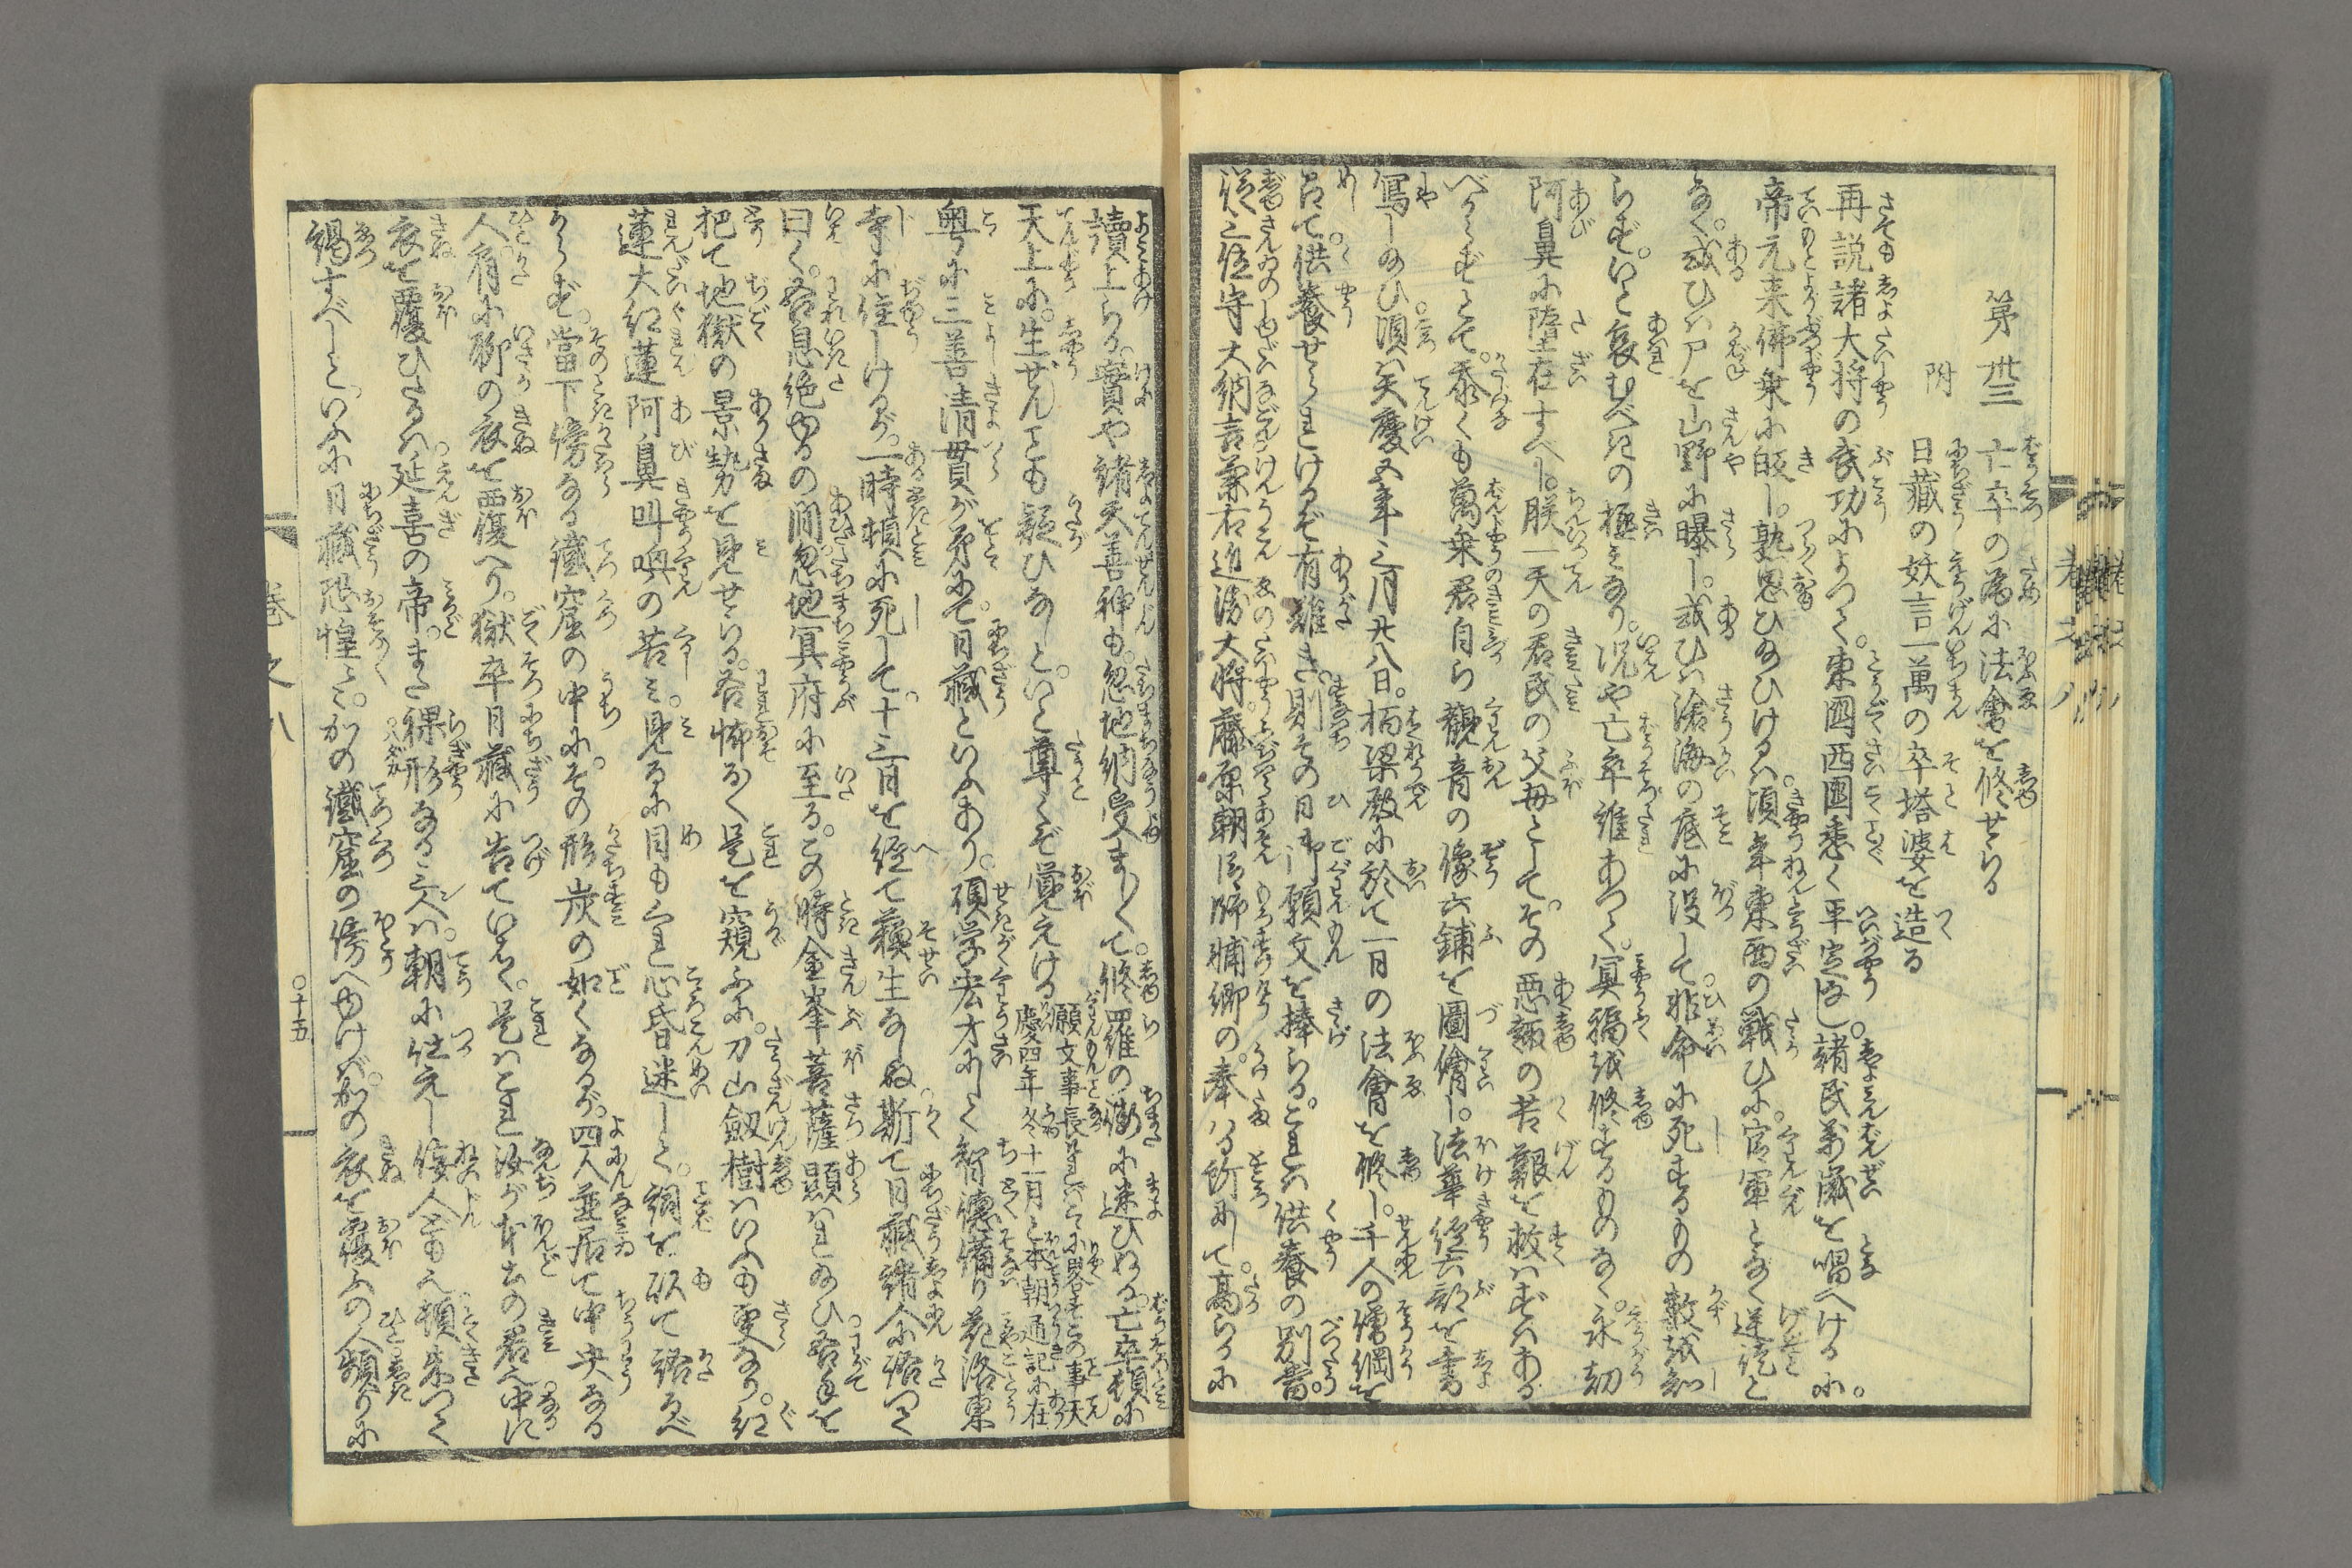 第卅三
亡卒の為に法會を修せらる
附
日藏の妖言一萬の卒塔婆を造る
再説諸大将の武功によつて。東國西國悉く平定し。諸民萬歳を唱へけるに。
帝元来佛乗に皈し。熟思ひ給ひけるハ。頃年東西の戦ひに。官軍となく逆徒と
なく。或ひハ尸を山野に曝し。或ひハ滄海の底に没して。非命に死するもの数を知
らず。いと哀むべきの極ミなり。况や亡卒誰あつて。冥福を修するものなく。永劫
阿鼻に墮在すべし。朕一天の君民の父母として。その悪趣の苦艱を救ハずハある
べからずとて。忝くも萬乗君自ら觀音の像六鋪を圖繪し。法華經六部を書
寫し給ひ。頃ハ天慶五年三月廿八日。栖梁殿に於て一日の法會を修し。千人の僧綱を
召て。供養せられけるぞ有難き。則その日御願文を捧らる。これハ供養の別當。
従三位守大納言兼右近衛大将。藤原朝臣師輔卿の。奉ハる所にして。高らかに
讀上らる。實や諸天善神も。忽地納受ましまして。修羅の街に迷ひぬる。亡卒頓に
天上に。生ぜんとも疑ひなしと。いと尊くぞ覚えける
願文事長けれバこゝに畧すこの事天
慶四年冬十一月と本朝通記に在
奥に三善清貫が弟にて。日藏といふあり。碩学宏才にして智徳備り花洛東
寺に住しけるが。一時頓に死して。十三日を經て蘓生なしぬ。斯て日藏諸人に語つて
曰く。吾息絶ゆるの間。忽地冥府に至る。この時金峯菩薩顕ハれ給ひ。吾手を
把て地獄の景勢を見せらる。吾怖なく是を窺ふに。刀山劔樹ハいふも更なり。紅
蓮大紅蓮阿鼻叫喚の苦ミ。見るに目もくれ心昏迷して。詞を以て語るべ
からず。當下傍なる鐵窟の中に。その形炭の如くなるが。四人並居て中央なる
人。肩に聊の衣を覆へり。獄卒日藏に告ていはく。是ハこれ汝が本土の君。中に
衣を覆ひたるハ。延喜の帝。また裸形なる三人ハ。朝に仕えし侫人ども也。頓朱つて
謁すべしと。いふに日藏恐惶ミ。かの鐵窟の傍へゆけバ。かの衣を覆ふの人頻りに
巻之八
〇十五